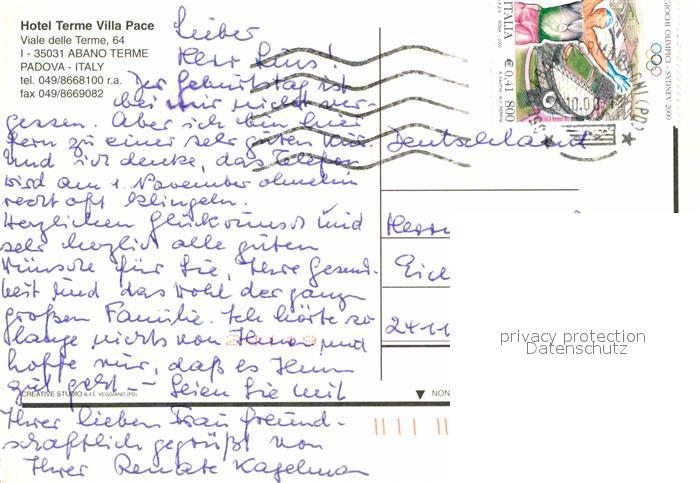 Hotel Terme Villa Pace
Viale delle Terme, 64
I - 35031 ABANO TERME
PADOVA - ITALY
tel. 049/8668100 r.a.
fax 049/8669082
Lieber
Herr
Der Geburtstag ist
bei mir nicht ver-
gessen. Aber ich bin hier
fern zu einer sehr guten Kur.
Und ich denke, das Telefon
wird am 1. November ohnehin
recht oft klingeln.
Herzlichen Glückwunsch und
sehr herzlich alle guten
Wünsche für Sie, Ihre Gesund-
heit und das Wohl der ganz
großen Familie. Ich hörte so
lange nichts von Ihnen und
hoffe nur, daß es Ihnen
gut geht — Seien Sie mit
Ihrer lieben Frau freund-
schaftlich gegrüßt von
Ihrer Renate Kagelman
CREATIVE STUDIO s.r.l. VEGGIANO (PD)
NON
ITALIA
€ 0,41 800
GIOCHI OLIMPICI - SYDNEY 2000
Deutschland
Herrn
Eich
24-11
privacy protection
Datenschutz